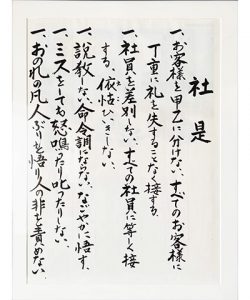 社是
一、お客様を甲乙に分けない、すべてのお客様に
丁重に礼を失することなく接する。
一、社員を差別しない、すべての社員に等しく接
する、依怙ひいきしない。
一、説教しない、命令調にならない、なごやかに悟す、
一、ミスをしても怒鳴ったり叱ったりしない、
一、おのれの凡人ぶりを悟り人の非を責めない、